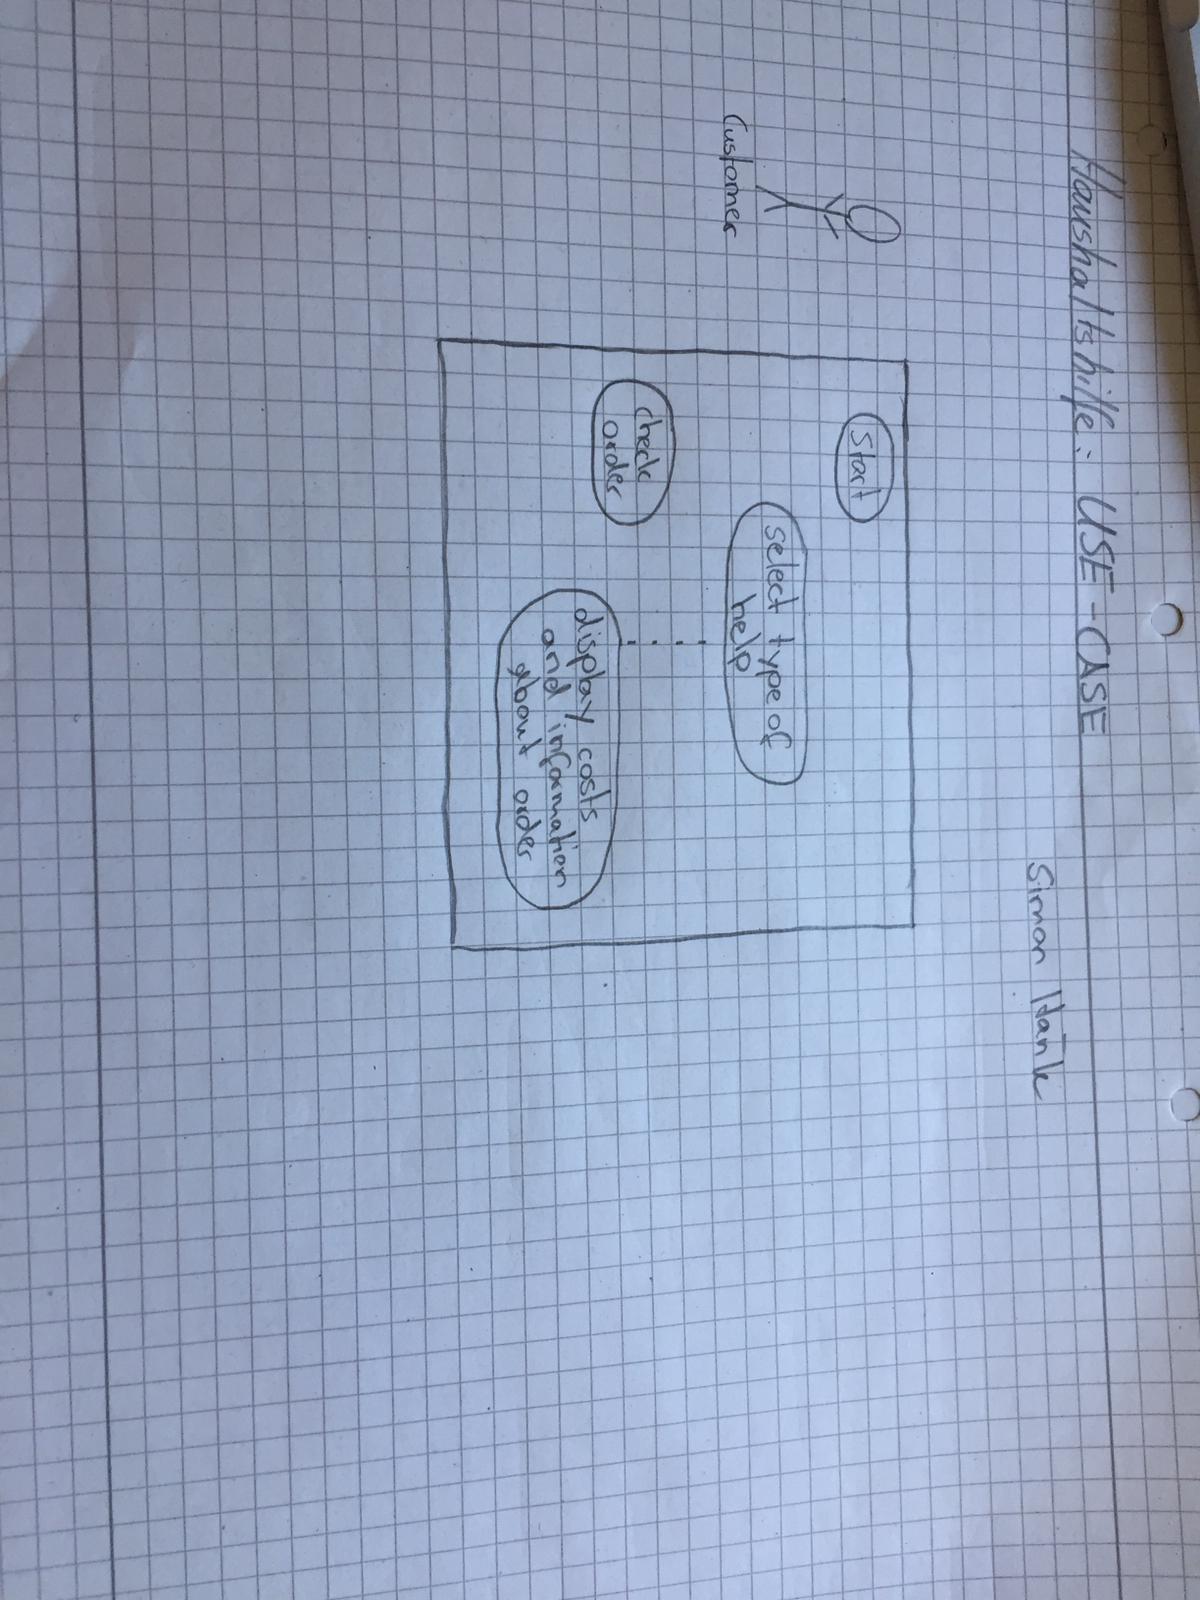 Haushaltshilfe: USE-CASE
Simon Hänk
Customer
Start
select type of
help
check
order
display costs
and information
about order